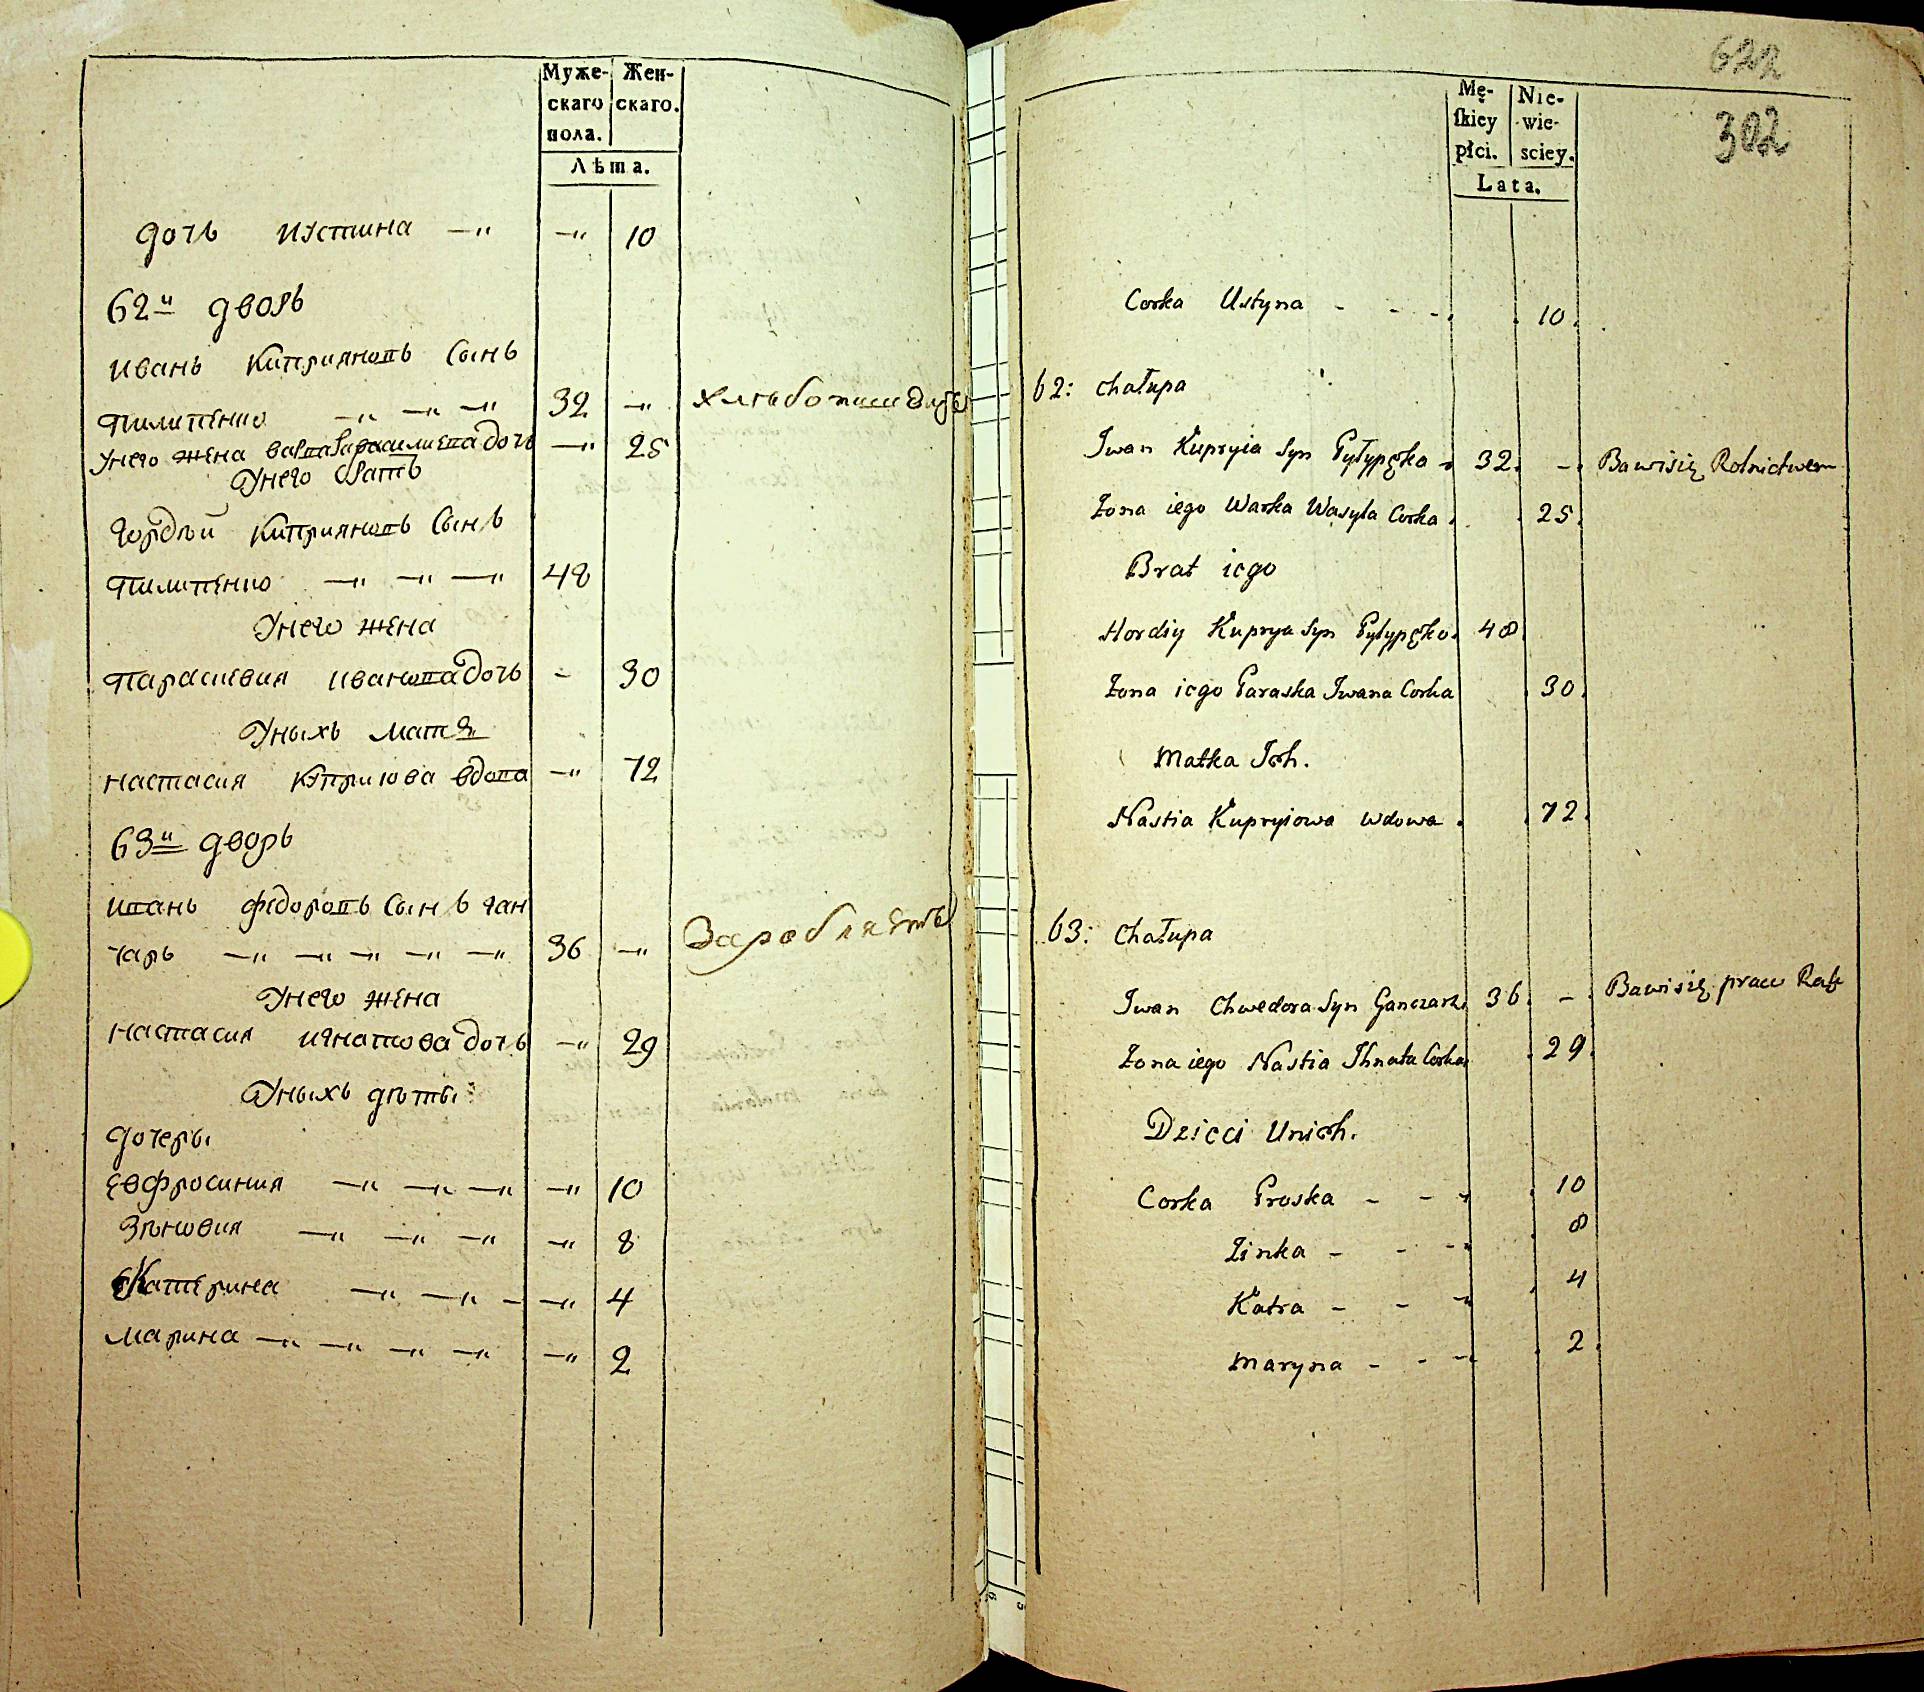 Муже-
скаго
пола.
Жен-
скаго.
Лѣта.
дочь Иустина —" —" 10
62й дворъ
Иванъ Киприяновъ Сынъ
Пилипенко —" —" —" 32 —" хлѣбопашецъ
Унего жена варва Василиева дочь —" 25
Унего братъ
Гордѣй Киприяновъ Сынъ
Пилипенко —" —" —" 48
Унего жена
Параскевия Иванова дочь - 30
Уныхъ мать
Настасия Куприюва вдова —" 72
63й дворъ
Иванъ Федоровъ Сынъ ган
чаръ —" —" —" —" —" 36 —" Заробляетъ
Унего жена
Настасия Игнатова дочь —" 29
Уныхъ дѣты:
дочеры
Евфросиния —" —" —" —" 10
Зѣновия —" —" —" —" 8
Екатерина —" —" - —" 4
Марина —" —" —" —" —" 2
622
302
Mę-
skiey
płci.
Nie-
wie-
sciey.
Lata.
Corka Ustyna - - - 10.
62: chałupa
Iwan Kupryia Syn Pyłypęko 32. - Bawisię Rolnictwem
Zona iego Warka Wasyla Corka 25.
Brat iego
Hordiy Kuprya Syn Pyłypęko. 48
Zona iego Paraska Iwana Corka 30.
Matka Ich.
Nastia Kupryiowa wdowa. 72.
63: Chałupa
Iwan Chwedora Syn Ganczarz 36. - Bawisię pracu Rąk
Zona iego Nastia Ihnata Corka 29.
Dzieci Unich.
Corka Proska - - - 10
Zinka - - - 8
Katra - - - 4
Maryna - - - 2.